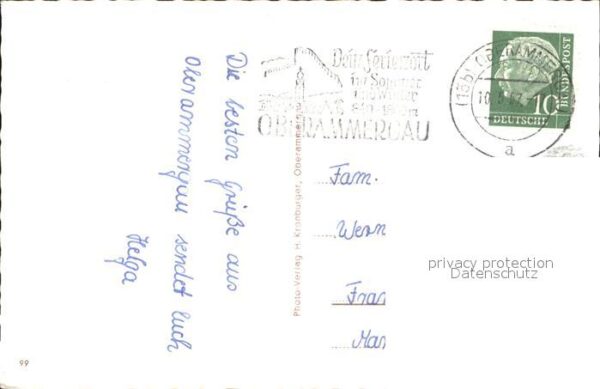 Die besten Grüße aus
Oberammergau sendet Euch
Helga
Dein Ferienort
im Sommer
u. Winter
OBERAMMERGAU
(13b) OBERAMME
10
a
10
DEUTSCHE
BUNDESPOST
Photo-Verlag H. Kronburger, Oberammergau
Fam.
Wern
Fran
Mar
privacy protection
Datenschutz
99